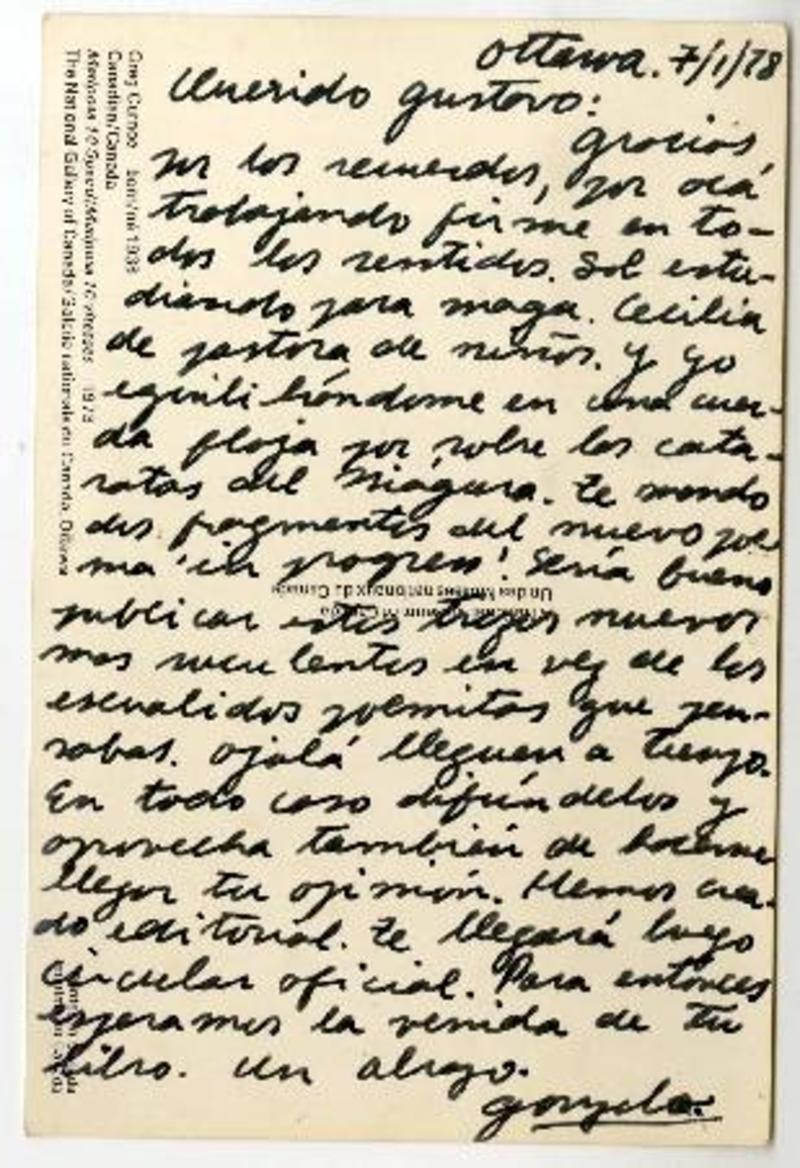 Ottawa. 7/1/78
Querido Gustavo:
Gracias,
por los recuerdos, por acá
trabajando firme en to-
dos los sentidos. Sol estu-
diando para maga. Cecilia
de pastora de niños. y yo
equilibrándome en una cuer-
da floja por sobre las cata-
ratas del Niágara. te mando
dos fragmentos del nuevo poe
ma 'in progress'! Sería bueno
publicar estos trozos nuevos
mas suculentos en vez de los
escualidos poemitas que pen-
sabas. ojalá lleguen a tiempo.
En todo caso difúndelos y
aprovecha también de hacerme
llegar tu opinión. Hemos crea-
do editorial. te llegará luego
circular oficial. Para entonces
esperamos la venida de tu
libro. un abrazo.
Gonzalo.
Greg Curnoe born/né 1936
Canadian/Canada
Mariposa 10 Speed/Mariposa 10 vitesses 1973
The National Gallery of Canada/Galerie nationale du Canada, Ottawa
Un des Musées nationaux du Canada